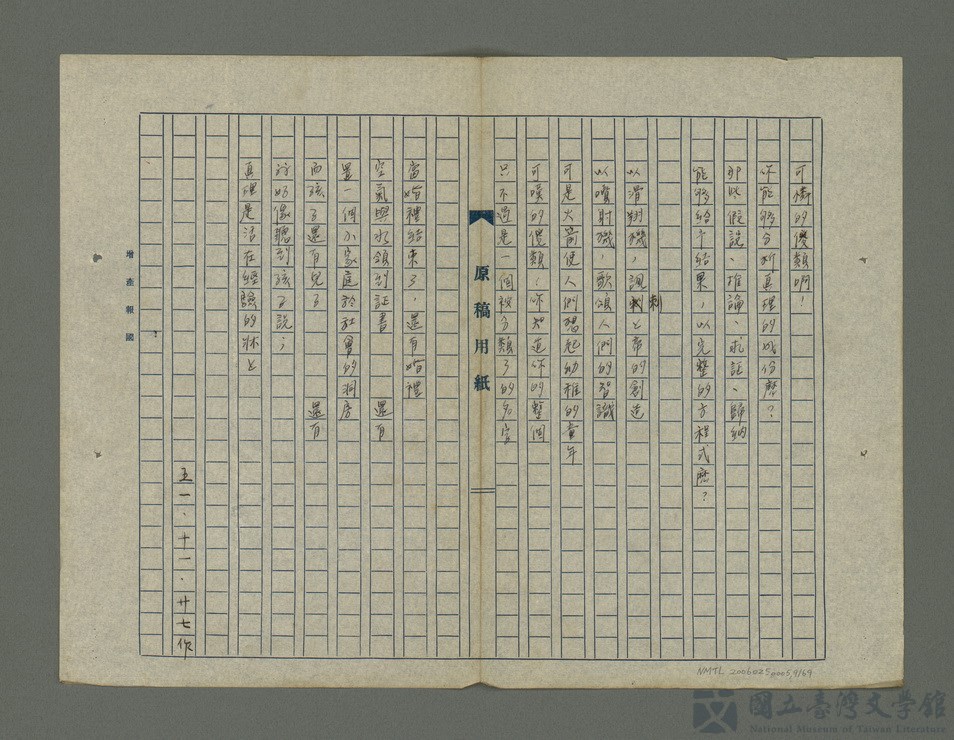 可憐的儍類啊！
你能够分析真理的成份麽？
那些假說、推論、求証、歸納
能够給予結果，以完整的方程式麽？
以滑翔機，諷刺上帝的創造
以噴射機，歌頌人們的智識
可是火箭使人們想起幼稚的童年
可嘆的儍類：你知道你的整個
只不過是一個被分類了的名字
原稿用紙
當婚禮結束了，還有婚禮
空氣與水領到証書　還有
置一個小家庭於社會的洞房
而孩子還有兒子　還有
好好像聽到孩子說；
真理是活在經驗的牀上
五一．十一．廿七作
增產報國
NMTL 20060250005,9/69
國立臺灣文學館
National Museum of Taiwan Literature